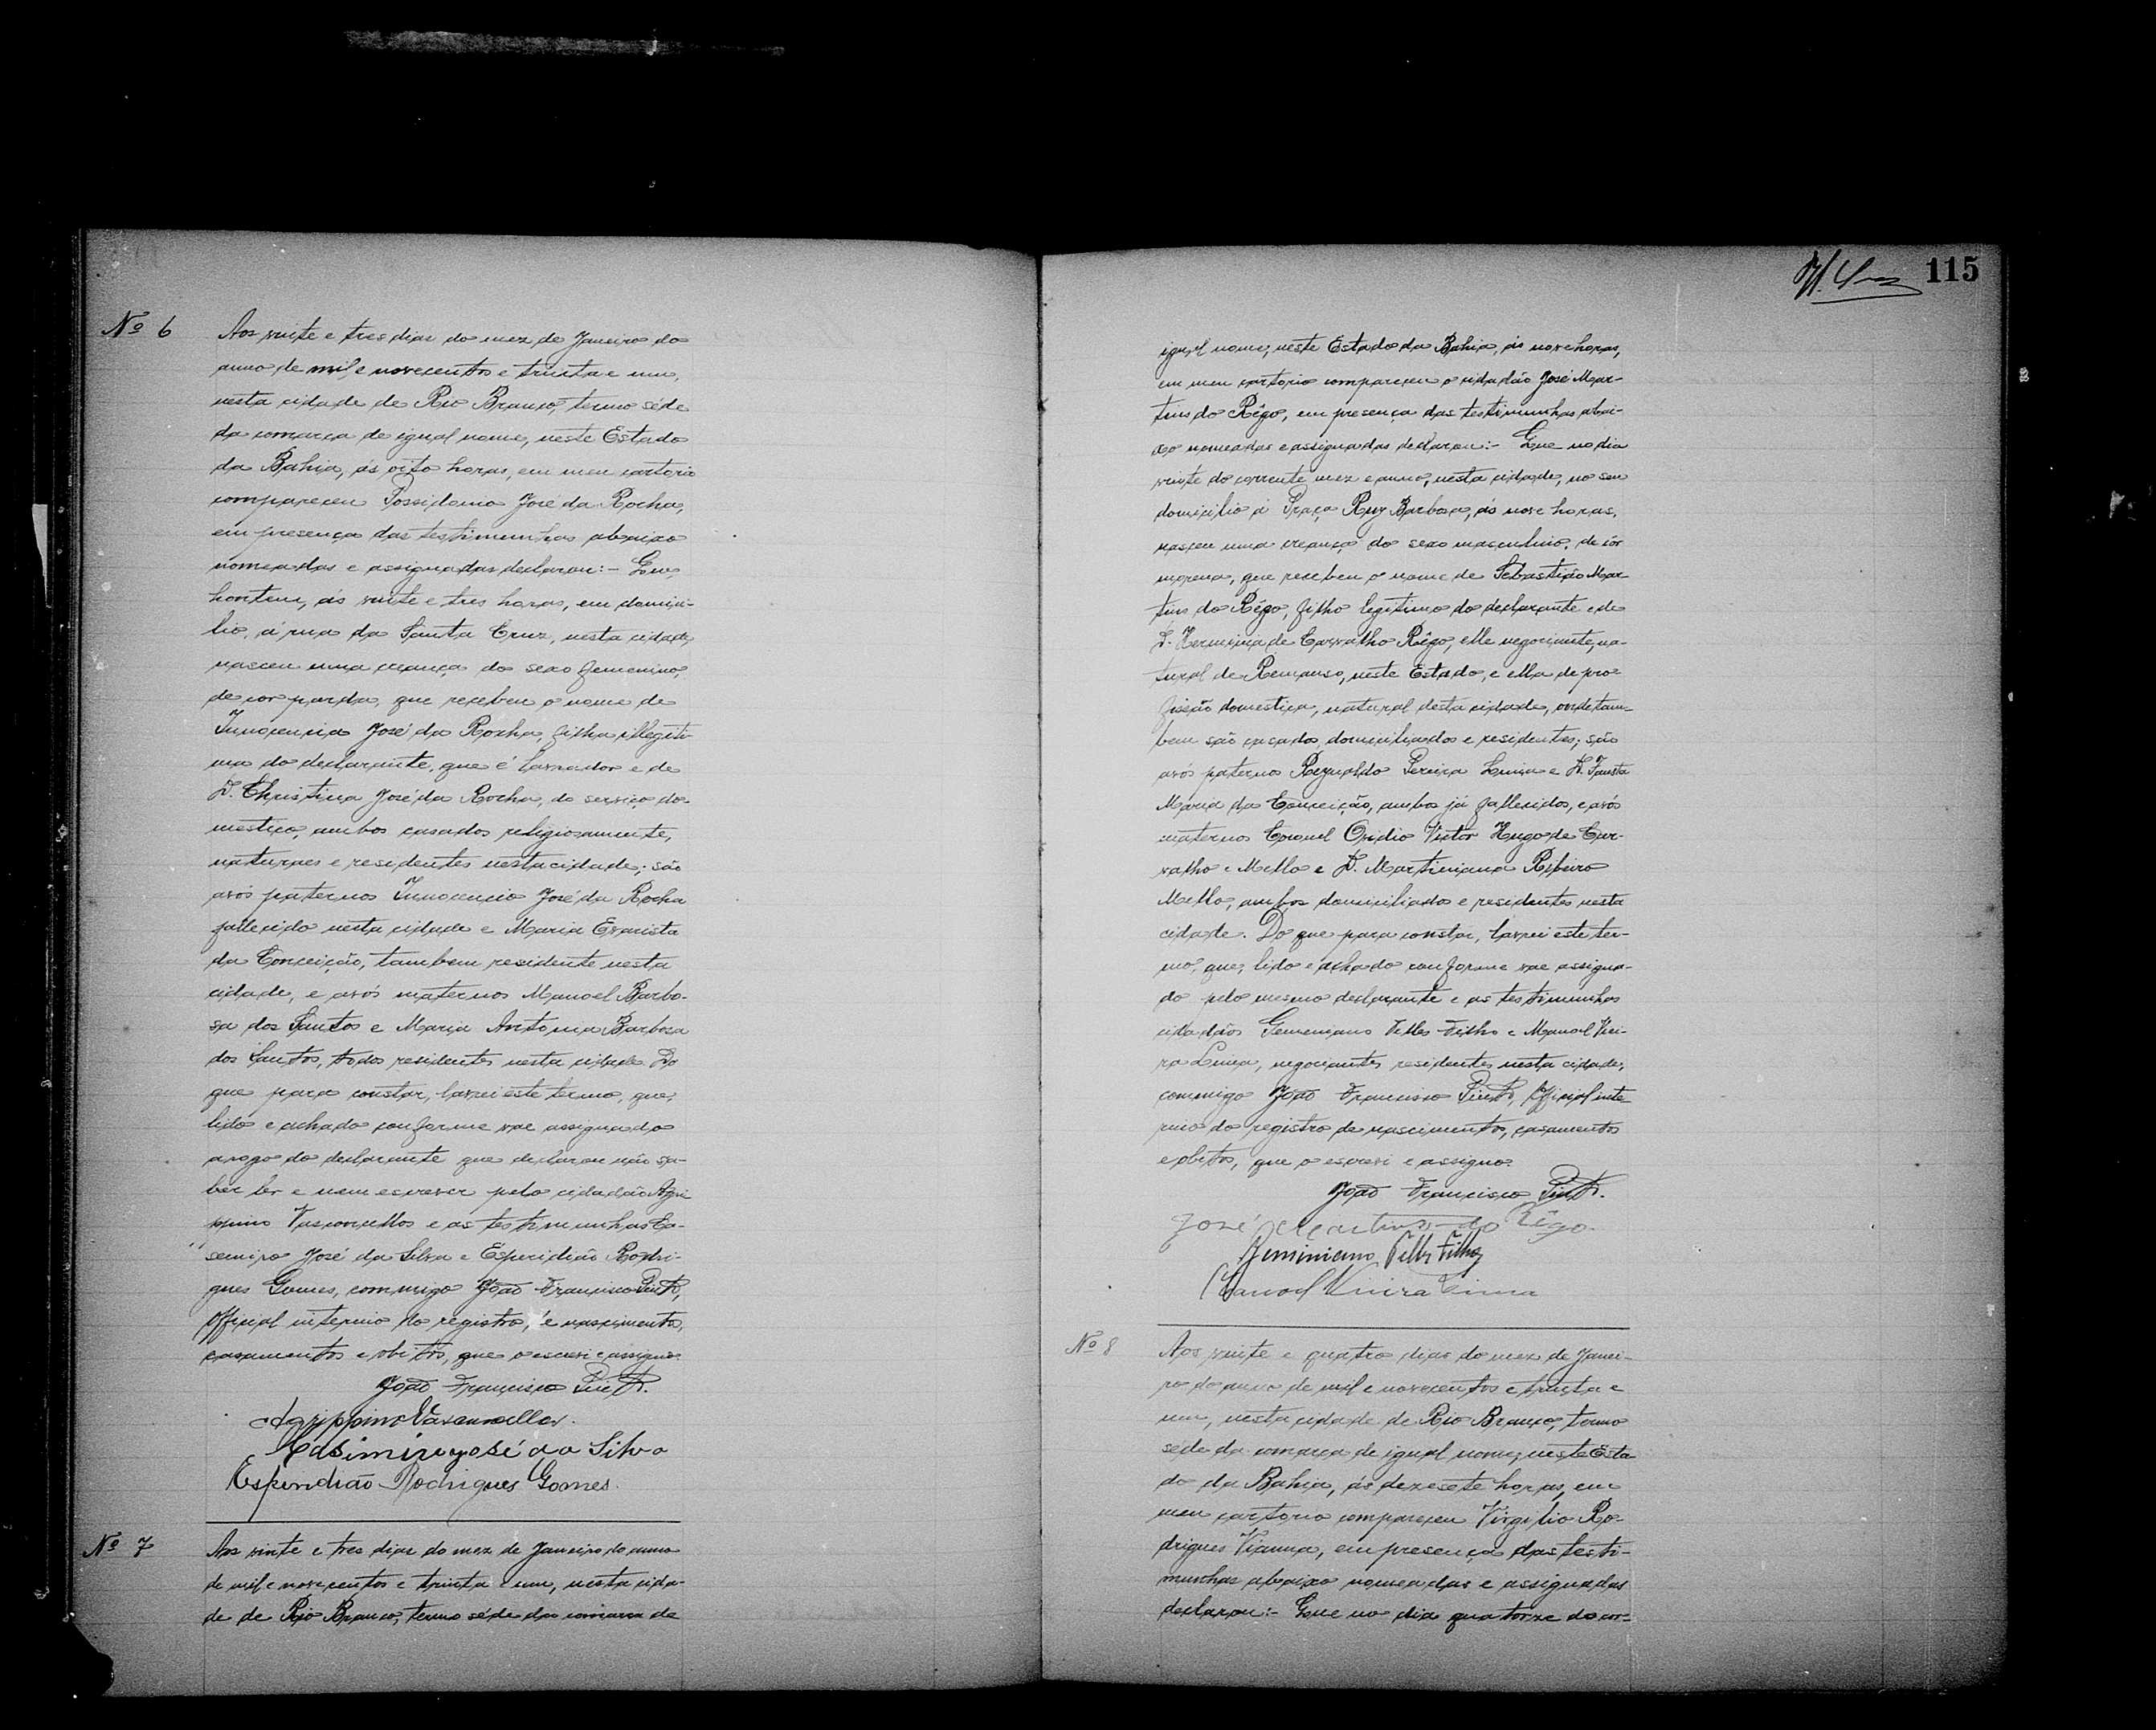 Nº 6
Aos vinte e tres dias do mez de Janeiro do
anno de mil e novecentos e trinta e um,
nesta cidade de Rio Branco, termo séde
da comarca de igual nome, neste Estado
da Bahia, ás oito horas, em meu cartorio
compareceu Possidonio José da Rocha,
em presença das testimunhas abaixo
nomeadas e assignadas declarou:- Que,
hontem, ás vinte e tres horas, em domici-
lio, á rua da Santa Cruz, nesta cidade,
nasceu uma creança do sexo femenino,
de cor parda, que recebeu o nome de
Innocencia José da Rocha, filha illegiti-
ma do declarante, que é lavrador e de
D. Christina José da Rocha, do serviço do-
mestico, ambos casados religiosamente,
naturaes e residentes nesta cidade; são
avós paternos Innocencio José da Rocha
fallecido nesta cidade e Maria Evarista
da Conceição, tambem residente nesta
cidade, e avós maternos Manoel Barbo-
sa dos Santos e Maria Antonia Barbosa
dos Santos, todos residentes nesta cidade. Do
que para constar, lavrei este termo, que,
lido e achado conforme vae assignado
a rogo do declarante que declarou não sa-
ber ler e nem escrever pelo cidadão Agri
ppino Vasconcellos e as testimunhas Ca-
semiro José da Silva e Esperidião Rodri-
gues Gomes, commigo João Francisco
Official interino do registro, de nascimentos,
casamentos e obitos, que o escrevi e assigno.
João Francisco
Agrippino Vasconcellos.
Casimiro José da Silva
Esperidião Rodrigues Gomes.
Nº 7
Aos vinte e tres dias do mez de Janeiro do anno
de mil e novecentos e trinta e um, nesta cida-
de de Rio Branco, termo séde da comarca de
115
igual nome, neste Estado da Bahia, ás nove horas,
em meu cartorio compareceu o cidadão José Mar-
tins do Rêgo, em presença das testimunhas abai-
xo nomeadas e assignadas declarou:- Que no dia
vinte do corrente mez e anno, nesta cidade, no seu
domicilio á Praça Ruy Barbosa, ás nove horas,
nasceu uma creança do sexo masculino, de côr
morena, que recebeu o nome de Sebastião Mar-
tins do Rêgo, filho legitimo do declarante e de
D. Herminia de Carvalho Rêgo, elle negociante, na-
tural de Remanso, neste Estado, e ella de pro-
fissão domestica, natural desta cidade, onde tam-
bem são casados, domiciliados e residentes; são
avós paternos Reynaldo Pereira Lima e D. Fausta
Maria da Conceição, ambos já fallecidos, e avós
maternos Coronel Ovidio Victor Hugo de Car-
valho e Mello e D. Martiniana Ribeiro
Mello, ambos domiciliados e residentes nesta
cidade. Do que para constar, lavrei este ter-
mo, que, lido e achado conforme vae assigna-
do pelo mesmo declarante e as testimunhas
cidadãos Geminiano Telles Filho e Manoel Viei-
ra Lima, negociantes, residentes nesta cidade,
commigo João Francisco Official inte
rino do registro de nascimentos, casamentos
e obitos, que o escrevi e assigno.
João Francisco
José Martins do Rêgo.
Geminiano Telles Filho
Manoel Vieira Lima
Nº 8
Aos vinte e quatro dias do mez de Janei-
ro do anno de mil e novecentos e trinta e
um, nesta cidade de Rio Branco, termo
séde da comarca de igual nome, neste Esta-
do da Bahia, ás dezesete horas, em
meu cartorio compareceu Virgilio Ro-
drigues Vianna, em presença das testi-
munhas abaixo nomeadas e assignadas
declarou:- Que no dia quatorze do cor-